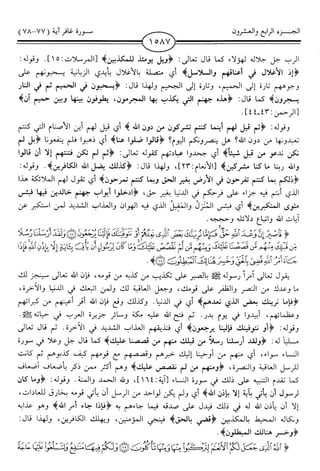 الجـزء الرابع والعشرون
١٥٨٧
سـورة غافر آية (٧٧-٧٨)
الرب جل جلاله لهؤلاء كما قال تعالى: ﴿ويل يومئذ للمكذبين﴾ [المرسلات: ١٥]. وقوله:
﴿إذ الأغلال في أعناقهم والسلاسل﴾ أي متصلة بالأغلال بأيدي الزبانية يسحبونهم على
وجوههم تارة إلى الحميم، وتارة إلى الجحيم ولهذا قال: ﴿يسحبون في الحميم ثم في النار
يسجرون﴾ كما قال: ﴿هذه جهنم التي يكذب بها المجرمون، يطوفون بينها وبين حميم آن﴾
[الرحمن: ٤٣ـ٤٤].
وقوله: ﴿ثم قيل لهم أينما كنتم تشركون من دون الله﴾ أي قيل لهم أين الأصنام التي كنتم
تعبدونها من دون الله؟ هل ينصرونكم اليوم؟ ﴿قالوا ضلوا عنا﴾ أي ذهبوا فلم ينفعونا ﴿بل لم
نكن ندعو من قبل شيئاً﴾ أي جحدوا عبادتهم كقوله تعالى: ﴿ثم لم تكن فتنتهم إلا أن قالوا
والله ربنا ما كنا مشركين﴾ [الأنعام: ٢٣]، ولهذا قال: ﴿كذلك يضل الله الكافرين﴾. وقوله:
﴿ذلكم بما كنتم تفرحون في الأرض بغير الحق وبما كنتم تمرحون﴾ أي تقول لهم الملائكة هذا
الذي أنتم فيه جزاء على فرحكم في الدنيا بغير حق، ﴿ادخلوا أبواب جهنم خالدين فيها فبئس
مثوى المتكبرين﴾ أي فبئس المنزل والمقيل الذي فيه الهوان والعذاب الشديد لمن استكبر عن
آيات الله واتباع دلائله وحججه.
﴿فَاصْبِرْ إِنَّ وَعْدَ اللَّهِ حَقٌّ فَإِمَّا نُرِيَنَّكَ بَعْضَ الَّذِي نَعِدُهُمْ أَوْ نَتَوَفَّيَنَّكَ فَإِلَيْنَا يُرْجَعُونَ ۝ وَلَقَدْ أَرْسَلْنَا رُسُلًا
مِّن قَبْلِكَ مِنْهُم مَّن قَصَصْنَا عَلَيْكَ وَمِنْهُم مَّن لَّمْ نَقْصُصْ عَلَيْكَ وَمَا كَانَ لِرَسُولٍ أَن يَأْتِيَ بِآيَةٍ إِلَّا بِإِذْنِ اللَّهِ فَإِذَا
جَاءَ أَمْرُ اللَّهِ قُضِيَ بِالْحَقِّ وَخَسِرَ هُنَالِكَ الْمُبْطِلُونَ ۝﴾.
يقول تعالى آمراً رسوله ﷺ بالصبر على تكذيب من كذبه من قومه، فإن الله تعالى سينجز لك
ما وعدك من النصر والظفر على قومك، وجعل العاقبة لك ولمن اتبعك في الدنيا والآخرة،
﴿فإما نرينك بعض الذي نعدهم﴾ أي في الدنيا. وكذلك وقع فإن الله أقر أعينهم من كبرائهم
وعظمائهم، أبيدوا في يوم بدر. ثم فتح الله عليه مكة وسائر جزيرة العرب في حياته ﷺ.
وقوله: ﴿أو نتوفينك فإلينا يرجعون﴾ أي فنذيقهم العذاب الشديد في الآخرة. ثم قال تعالى
مسلياً له: ﴿ولقد أرسلنا رسلاً من قبلك منهم من قصصنا عليك﴾ كما قال جل وعلا في سورة
النساء سواء، أي منهم من أوحينا إليك خبرهم وقصصهم مع قومهم كيف كذبوهم ثم كانت
للرسل العاقبة والنصرة، ﴿ومنهم من لم نقصص عليك﴾ وهم أكثر ممن ذكر بأضعاف أضعاف
كما تقدم التنبيه على ذلك في سورة النساء [آية: ١٦٤]، ولله الحمد والمنة. وقوله: ﴿وما كان
لرسول أن يأتي بآية إلا بإذن الله﴾ أي ولم يكن لواحد من الرسل أن يأتي قومه بخارق للعادات،
إلا أن يأذن الله له في ذلك فيدل على صدقه فيما جاءهم به ﴿فإذا جاء أمر الله﴾ وهو عذابه
ونكاله المحيط بالمكذبين ﴿قضي بالحق﴾ فينجي المؤمنين، ويهلك الكافرين، ولهذا قال:
﴿وخسر هنالك المبطلون﴾.
﴿اللَّهُ الَّذِي جَعَلَ لَكُمُ الْأَنْعَامَ لِتَرْكَبُوا مِنْهَا وَمِنْهَا تَأْكُلُونَ ۝ وَلَكُمْ فِيهَا مَنَافِعُ وَلِتَبْلُغُوا عَلَيْهَا حَاجَةً